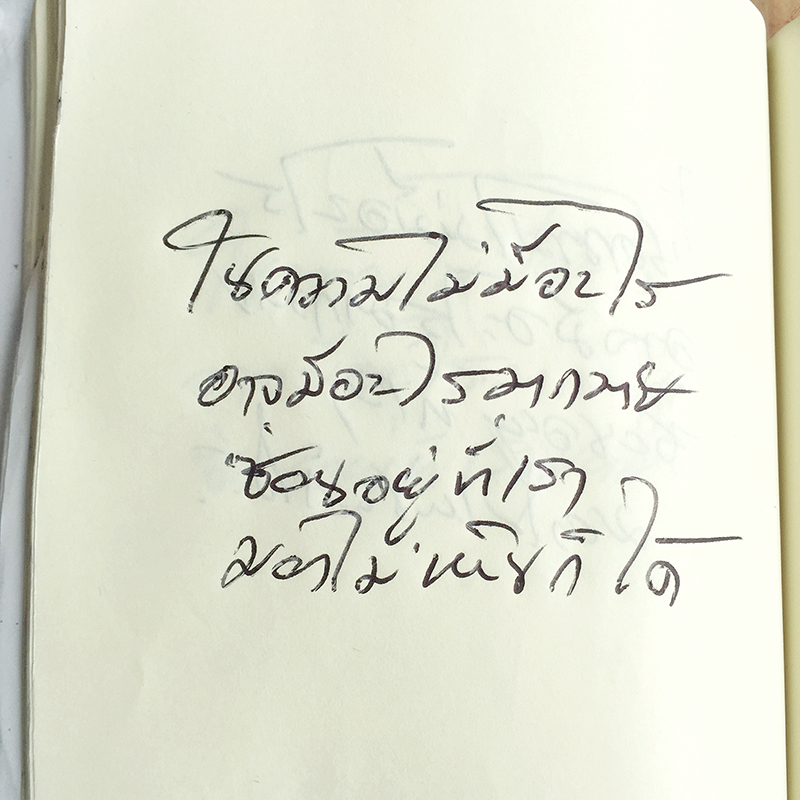 ในความไม่มีอะไร
อาจมีอะไรมากมาย
ซ่อนอยู่ที่เรา
มองไม่เห็นก็ได้